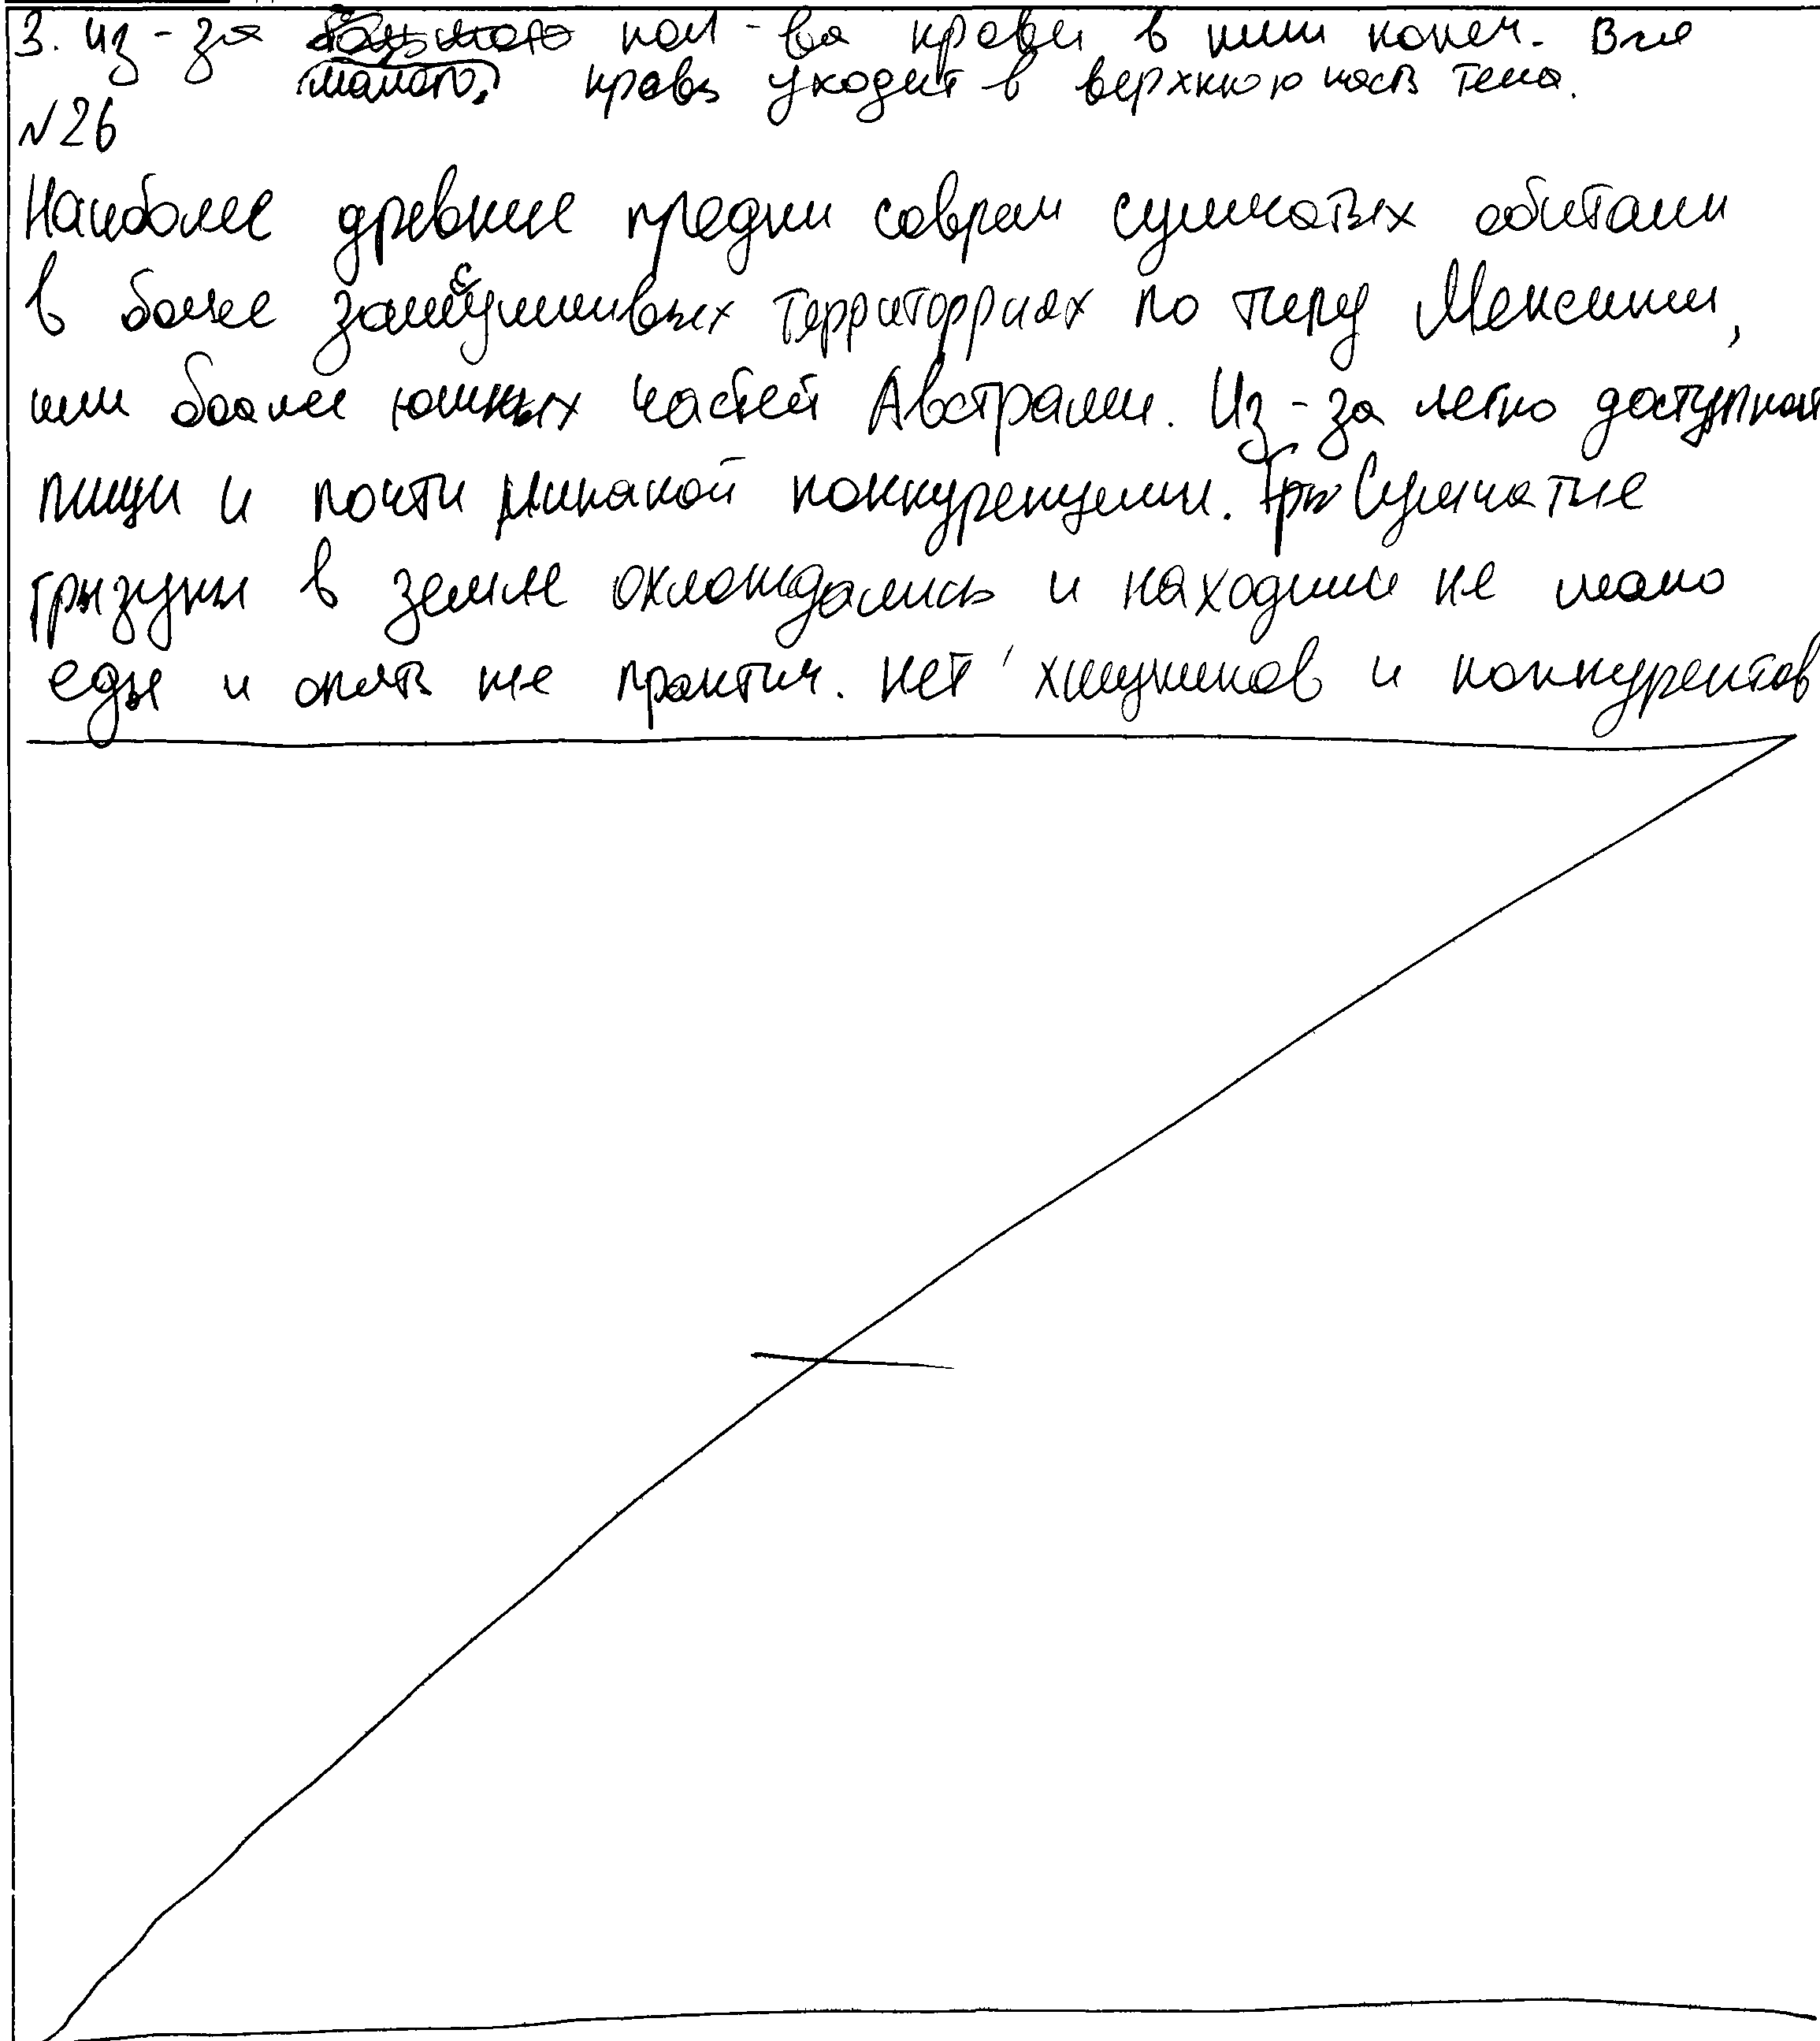 3. из-за малого кол-ва крови в ниж конеч. Вся
кровь уходит в верхнюю часть тела.
№26
Наиболее древние предки соврем сумчатых обитали
в более засушливых территорриях по типу Мексики,
или более южных частей Австралии. Из-за легко доступной
пищи и почти никакой конкуренции. Сумчатые
грызуны в земле охлаждались и находили не мало
еды и опять же практич. нет хищников и конкурентов